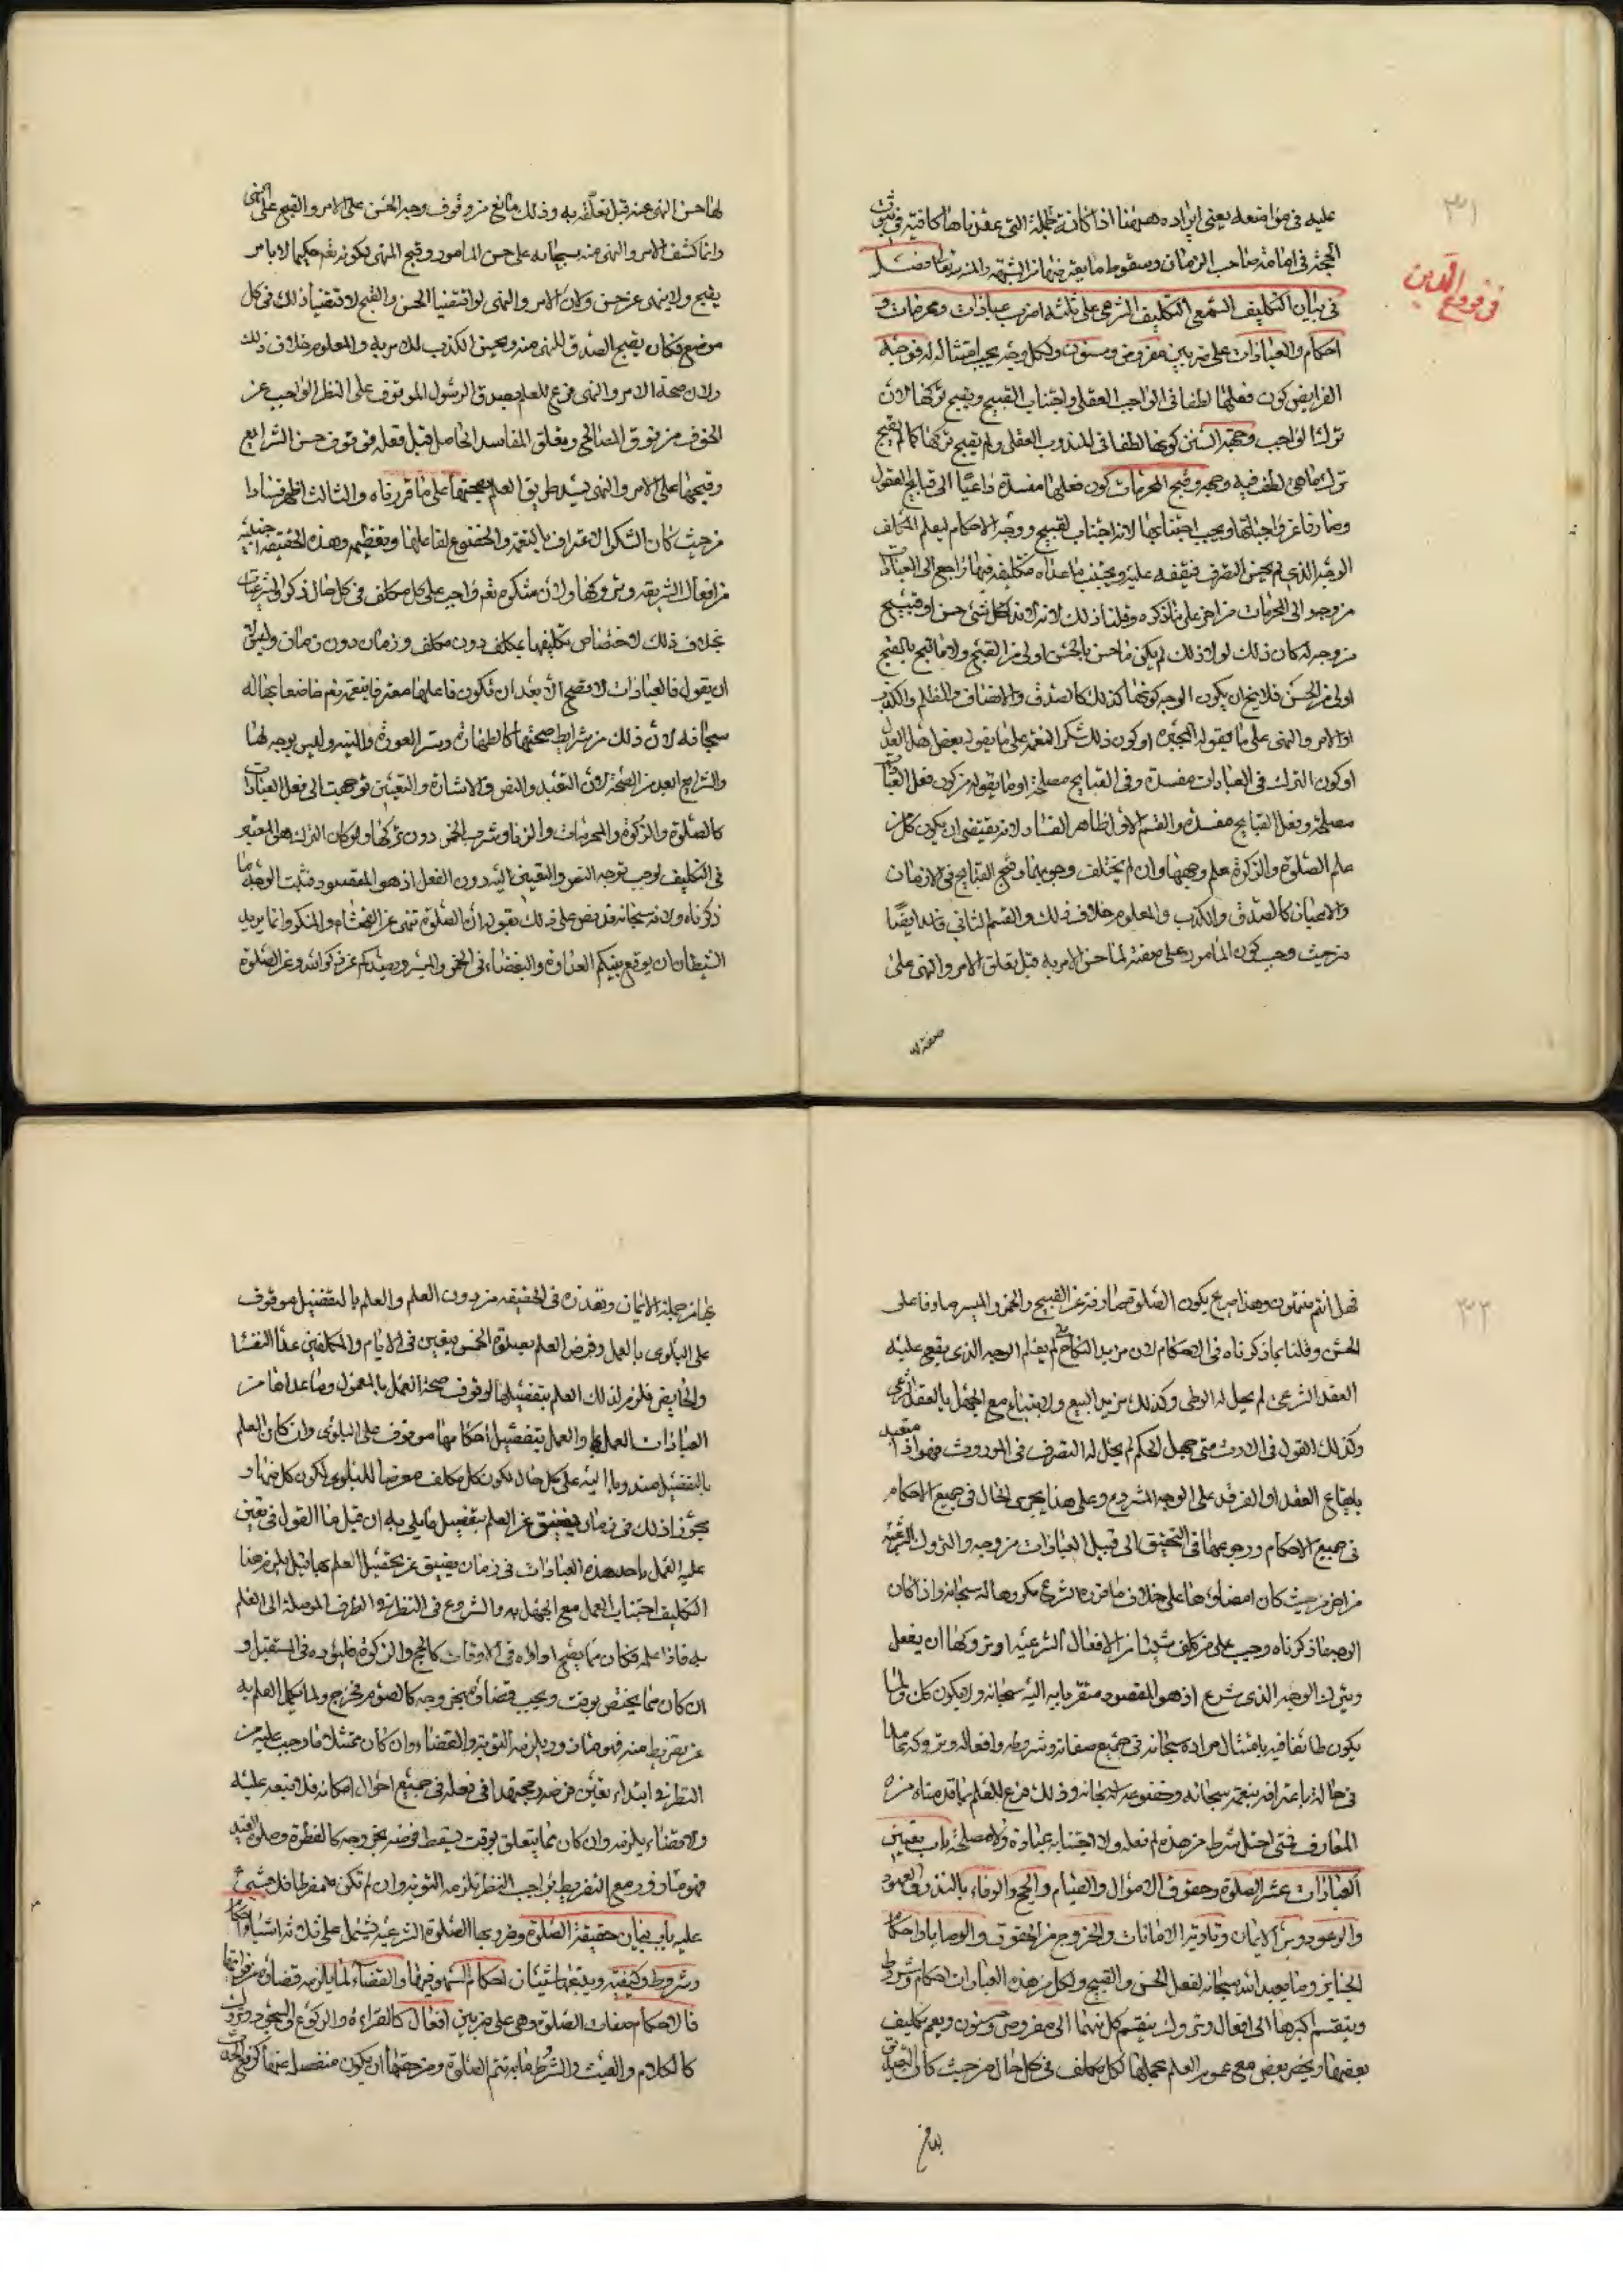 ٣١
في فروع الدين
عليه في مواضعه يعني ايراده ههنا اذا كانت الجملة التي عقدناها كافية في ثبوت
الحجة في امامة صاحب الزمان وسقوط ما يعترضها من الشبهة والمنة لله تعالى فصل
في بيان التكليف السمعي التكليف الشرعي على ثلثة اضرب عبادات ومحرمات و
احكام والعبادات على ضربين مفروض ومسنون ولكل وجه يجب امتثاله له فوجه
الفرايض كون فعلها لطفا في الواجب العقلي واجتناب القبيح وقبح تركها لانه
ترك الواجب وجهة السنن كونها لطفا في المندوب العقلي ولم يقبح تركها كما لم يقبح
ترك ما هي لطف فيه وجهة قبح المحرمات كون فعلها مفسدة داعيا الى قبايح العقول
وصارفا عن واجباتها ويجب اجتنابها لانه اجتناب لقبيح ووجه الاحكام ليعلم المكلف
الوجه الذي يحسن التصرف فيقفه عليه ويجتنب ما عداه فتكليفه فيها راجع الى العبادات
من وجه والى المحرمات من اخر على ما نذكره وقلنا ذلك لانه لا بد لكل شئ حسن او قبيح
من وجه له كان ذلك لولا ذلك لم يكن ما حسن بالحسن اولى من القبح ولا ما قبح بالقبح
اولى من الحسن فلا يخ ان يكون الوجه كونها كذلك كالصدق والانصاف والظلم والكذب
او الامر والنهي على ما يقوله المجبرة او كون ذلك شكرا لنعمه على ما يقوله بعض اهل العدل
او كون الترك في العبادات مفسدة وفي القبايح مصلحة او ما يقوله من كون فعل العبادات
مصلحة وفعل القبايح مفسدة والقسم الاول ظاهر الفساد لانه يقتضي ان يكون كل من
علم الصلوة والزكوة علم وجهها وان لم يختلف وجوبها وقبح القبايح في الازمان
والاعيان كالصدق والكذب والمعلوم خلاف ذلك والقسم الثاني فاسد ايضا
من حيث وجب كون المامور على صفة لها حسن الامر به قبل تعلق الامر والنهي على
صفة
لها حسن النهي عنه قبل تعلقه به وذلك مانع من وقوف وجه الحسن على الامر والقبح على النهي
وانما كشف الامر والنهي منه سبحانه على حسن المامور وقبح المنهي لكونه تعم حكيما لا يامر
بقبيح ولا ينهى عن حسن ولان الامر والنهي لو اقتضيا الحسن والقبح لاقتضيا ذلك في كل
موضع فكان يقبح الصدق للنهي عنه ويحسن الكذب للامر به والمعلوم خلاف ذلك
ولان صحة الامر والنهي فرع للعلم بصدق الرسول الموقوف على النظر الواجب عن
الخوف من فوت المصالح وتعلق المفاسد الحاصل قبل فعله فوقوف حسن الشرايع
وقبحها على الامر والنهي يسد طريق العلم بصحتها على ما قررناه والثالث ظاهر فسادا
من حيث كان الشكر الاعتراف بالنعمة والخضوع لفاعلها وتعظيمه وهذه الحقيقة اجنبية
من افعال الشريعة وتروكها ولان شكره تعم واجب على كل مكلف في كل حال ذكر والشرعيات
بخلاف ذلك لاختصاص تكليفها بمكلف دون مكلف وزمان دون زمان وليس له
ان يقول فالعبادات لا تصح الا بعد ان يكون فاعلها معترفا بنعمه تعم خاضعا بها له
سبحانه لان ذلك من شرايط صحتها كالطهارة وستر العورة والنية وليس بوجه لها
والرابع ابعد من الصحة لان التعبد والنص والاشارة والتعيين توجهت الى فعل العبادات
كالصلوة والزكوة والمحرمات والزنا وشرب الخمر دون تركها ولو كان الترك هو المعتبر
في التكليف لوجب توجه النص والتعيين اليه دون الفعل اذ هو المقصود فثبت الوجه ما
ذكرناه ولانه سبحانه قد نص على ذلك بقوله ان الصلوة تنهى عن الفحشاء والمنكر وانما يريد
الشيطان ان يوقع بينكم العداوة والبغضاء في الخمر والميسر ويصدكم عن ذكر الله وعن الصلوة
٣٢
فهل انتم منتهون وهذا صريح بكون الصلوة صارفة عن القبيح والخمر والميسر صارفا على
الحسن وقلنا بما ذكرناه في الاحكام لان مريد النكاح متى لم يعلم الوجه الذي يقع عليه
العقد الشرعي لم يحل له الوطي وكذلك مريد البيع والابتياع مع الجهل بالعقد الشرعي
وكذلك القول في الارث متى جهل الحكم لم يحل له التصرف في الموروث فهو اذا متعبد
بايقاع العقد او الفرقة على الوجه المشروع وعلى هذا يجري الحال في جميع الاحكام
في جميع الاحكام ورجوعها في التحقيق الى قبيل العبادات من وجه والتروك الشرعية
من اخر من حيث كان امضاؤها على خلاف ما قرره الشرع مكروها له سبحانه واذا كان
الوجه ما ذكرناه وجب على من كلف شيئا من الافعال الشرعية او تروكها ان يفعل
ويترك الوجه الذي شرع اذ هو المقصود متقربا به اليه سبحانه ولا يكون كل
يكون طائعا فيه بامتثال مراده سبحانه في جميع صفاته وشروطه وافعاله وتروكه
في حاله باعترافه بنعمه سبحانه وخضوعه له سبحانه وذلك فرع للعلم بما قدمناه من
المعارف فمتى اختل شرط من هذه لم يكن فعله ولا اجتنابه عبادة ولا مصلحة باب تعيين
العبادات عشر الصلوة وحقوق الاموال والصيام والحج والوفاء بالنذور والعهود
والوعود وبر الايمان وتادية الامانات والخروج من الحقوق والوصايا واحكام
الجنايز وما يعبد الله سبحانه لفعل الحسن والقبيح ولكل من هذه العبادات احكام وشروط
وينقسم اكبرها الى افعال وتروك وينقسم كل منهما الى مفروض ومسنون ويعم تكليف
بعضها ويخص بعض مع عموم العلم بجملها لكل مكلف في كل حال من حيث كان التصديق
بها من جملة الايمان وتعذره في الحقيقة من دون العلم والعلم بالتفضيل موقوف
على البلوى بالعمل وفرض العلم بصلوة الخمس يتعين في الايام والمكلفين عدا النفسا
والحايض فلزم لذلك العلم بتفصيلها لوقوف صحة العمل بالمعمول وما عداها من
العبادات العمل بها والعمل بتفصيل احكامها موقوف على البلوى وان كان العلم
بالتفصيل مندوبا اليه على كل حال لكون كل مكلف معرضا للبلوى لكون كل منها و
يجوز اذ ذلك في زمان يضيق عن العلم بتفصيل ما بلي به ان قيل فما القول في تعين
عليه العمل باحد هذه العبادات في زمان يضيق عن تحصيل العلم بها قيل يلزم هذا
التكليف اجتناب العمل مع الجهل به والشروع في النظر في الطرق الموصلة الى العلم
به فاذا علمه فكان مما يصح اداؤه في الاوقات كالحج والزكوة فليؤده في المستقبل و
ان كان مما يختص بوقت ويجب قضاؤه بخروجه كالصوم فخرج ولما يكمل العلم به
عن تفريط منه فهو مازور ويلزمه التوبة والقضاء وان كان ممتثلا ما وجب عليه من
النظر في ابتداء تعين فرضه مجتهدا في فعله في جميع احوال امكانه فلا تبعة عليه
ولا قضاء يلزمه وان كان مما يتعلق بوقت يسقط فرضه بخروجه كالفطرة وصلوة العيد
فهو مازور مع التفريط بواجب النظر تلزمه التوبة وان لم تكن مفرطا فلا شئ
عليه باب بيان حقيقة الصلوة وضروبها الصلوة الشرعية تشتمل على ثلاثة اشياء احكام
وشروط وكيفية ويتبعها شيئان احكام السهو فيها والقضاء لما يلزمه قضاؤه من فواتها
فالاحكام صفات الصلوة وهي على ضربين افعال كالقراءة والركوع والسجود وتروك
كالكلام والعبث والشرط ما به تتم الصلوة ومن حقها ان يكون منفصلا عنها